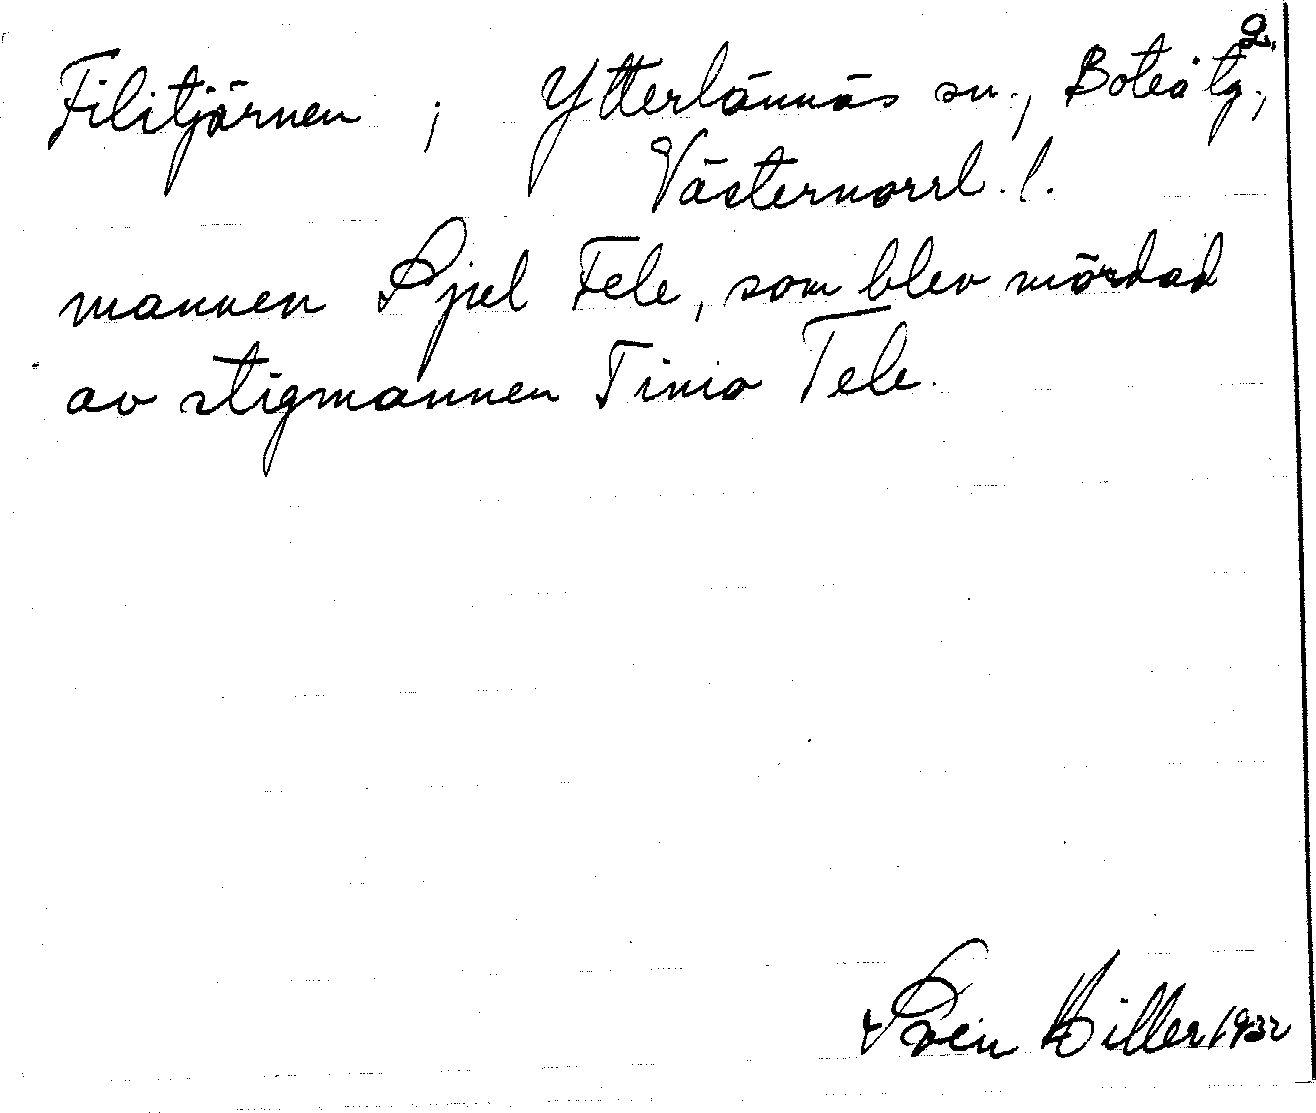 2.
Filitjärnen ; Ytterlännäs sn., Boteå tg.,
Västernorrl. l.
mannen Spel Fele, som blev mördad
av stigmannen Timo Tele.
Sven Hiller 1932